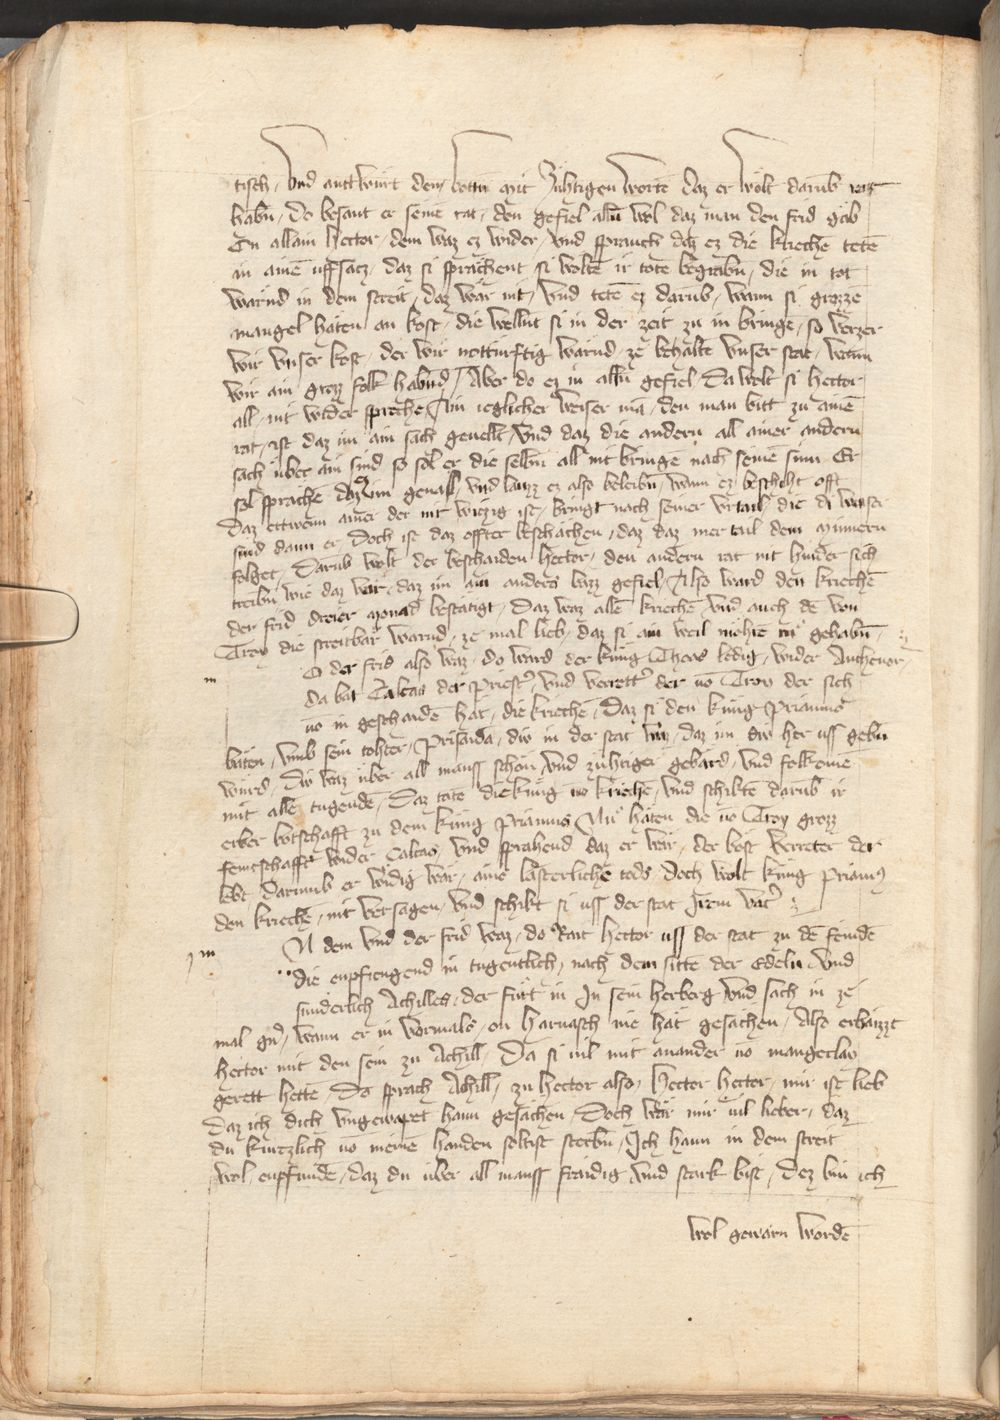 tisch / Vnd anttwurt dem bottn̄ mit zúhtigen wortē daz er wolt darūb rat
habn̄ / Do besant er seinē rat / den gefiel alln̄ wol daz man den frid gäb
On allain hector / dem waz ez wider / vnd sprauch daz ez die kriechē tetē
in ainē uffsacz / daz si sprächent si woltē ir totē begrabn̄ / die in tot
wärind in dem streit / daz wär nit / vnd tetē ez darūb / wann si grozzē
mangel häten an kost / die wellint si in der zeit zu in bringē / so verzer
wir vnser kost / der wir notturftig wärnd / ze behaltē vnser stat / wann
wir ain grozz folk habnd / Aber do ez in alln̄ gefiel / Da wolt si hector
all / nit wider sprechē / Ain ieglicher weiser mā / den man bitt zu ainē
rat / ist daz im ain sach gevellt / Vnd daz die andern all ainer andern
sach über ain sind so sol er die selbn̄ all nit bringē nach seinē sinn Er
sol sprächē daz im genall / vnd lauzz ez also beleibn̄ / wann ez beschiht offt
Daz ettwenn ainer der nit wiczig ist / bringt nach seiner vrtail / die di weiser
sind dann er Doch ist daz offter beschächen / daz daz mer tail dem minnern
folget / Darūb wolt der beschaiden Hector / den andern rat nit hinder sich
treibn̄ wie daz wär / daz im ain anders bazz gefiel / Also ward den kriechē
der frid dreier monad bestätigt / Daz waz allē kriechē vnd auch dē von
Troy die streitbär warnd / ze mal lieb / daz si ain weil mohtē rů gehabn̄ /
O der frid also waz / do ward der küng Thoas ledig / wider Anthenor /
da bat Calcas der priestʼ / vnd verrettʼ der uō Troy der sich
uō in geschaidē hat / die kriechē / Daz si den küng priamus
bäten / vmb sein tohter / Prisaida / diu in der stat waz / daz im die her uss gebn̄
würd / Diu waz über all mauss schön vnd zúhtiger gebärd / vnd folkomē
mit allē tugendē / Daz tatē die küng uō kriechē / vnd schiktē darūb ir
erber botschafft zu dem küng priamus Nu häten die uō Troy grozz
feintschafft wider Calcas / vnd sprahend daz er wär / der böst verreter der
lebt darumb er wirdig wär / ainē lasterlichē tods / Doch wolt küng priamꝰ
den kriechē / nit versagen / vnd schikt si uss der stat Irem vatʼ
N dem vnd der frid waz / do Rait hector uss der stat zu dē feindē
die enpfiengend in tugentlich / nach dem sittē der Edeln vnd
sunderlich Achilles / der fürt in In sein herberg vnd sach in ze
mal gn̄ / wann er in vormals / on harnasch nie hät gesächen / Also erbaizzt
hector mit den sein zu Achill / Da si uil mit anander uō mangerlay
gerett hettē / Do sprach Achill / zu Hector also / Hector Hector / mir ist lieb
daz ich dich vngewapet hann gesächen / Doch wär mir uil lieber / daz
du kurczlich uō meinē handen soltist sterbn̄ / Ich hann in dem streit
wol enpfundē / daz du über all mauss fraidig vnd stark bist / Dez bin ich
wol gewarn wordē